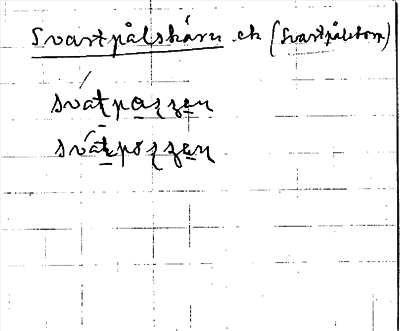 Svartpålskärn ek (Svartpålstorn)
svátpazzen
svátpozzen